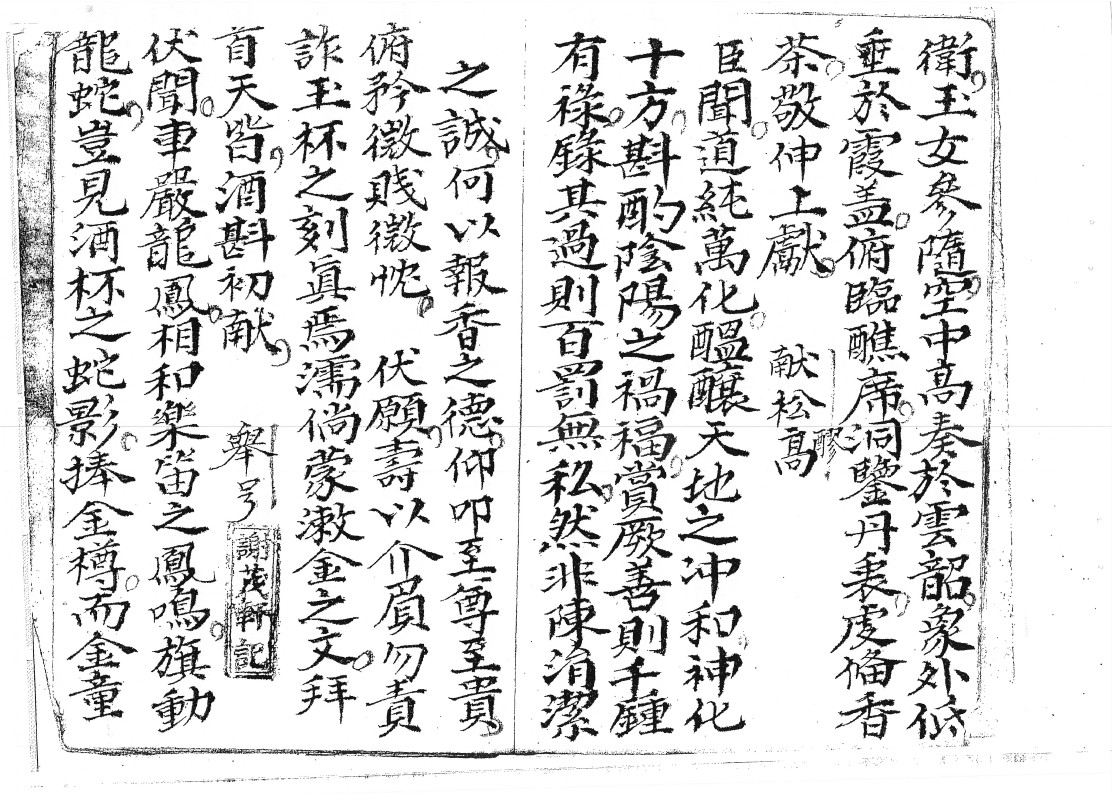 衛玉女參隨空中高奏於雲韶象外低
垂於霞盖俯臨醮席洞鑒丹衷虔俻香
茶敬伸上獻
献松高醪
臣聞道純萬化醞釀天地之沖和神化
十方斟酌陰陽之禍福賞厥善則千鍾
有祿錄其過則百罰無私然非陳涓潔
之誠何以報香之德仰叩至尊至貴
俯矜微賤微忱 伏願壽以介眉勿責
詐玉杯之刻眞焉濡倘蒙漱金之文拜
首天皆酒斟初献
舉号
謝茂軒記
伏聞車嚴龍鳳相和樂笛之鳳鳴旗動
龍蛇豈見酒杯之蛇影捧金樽而金童